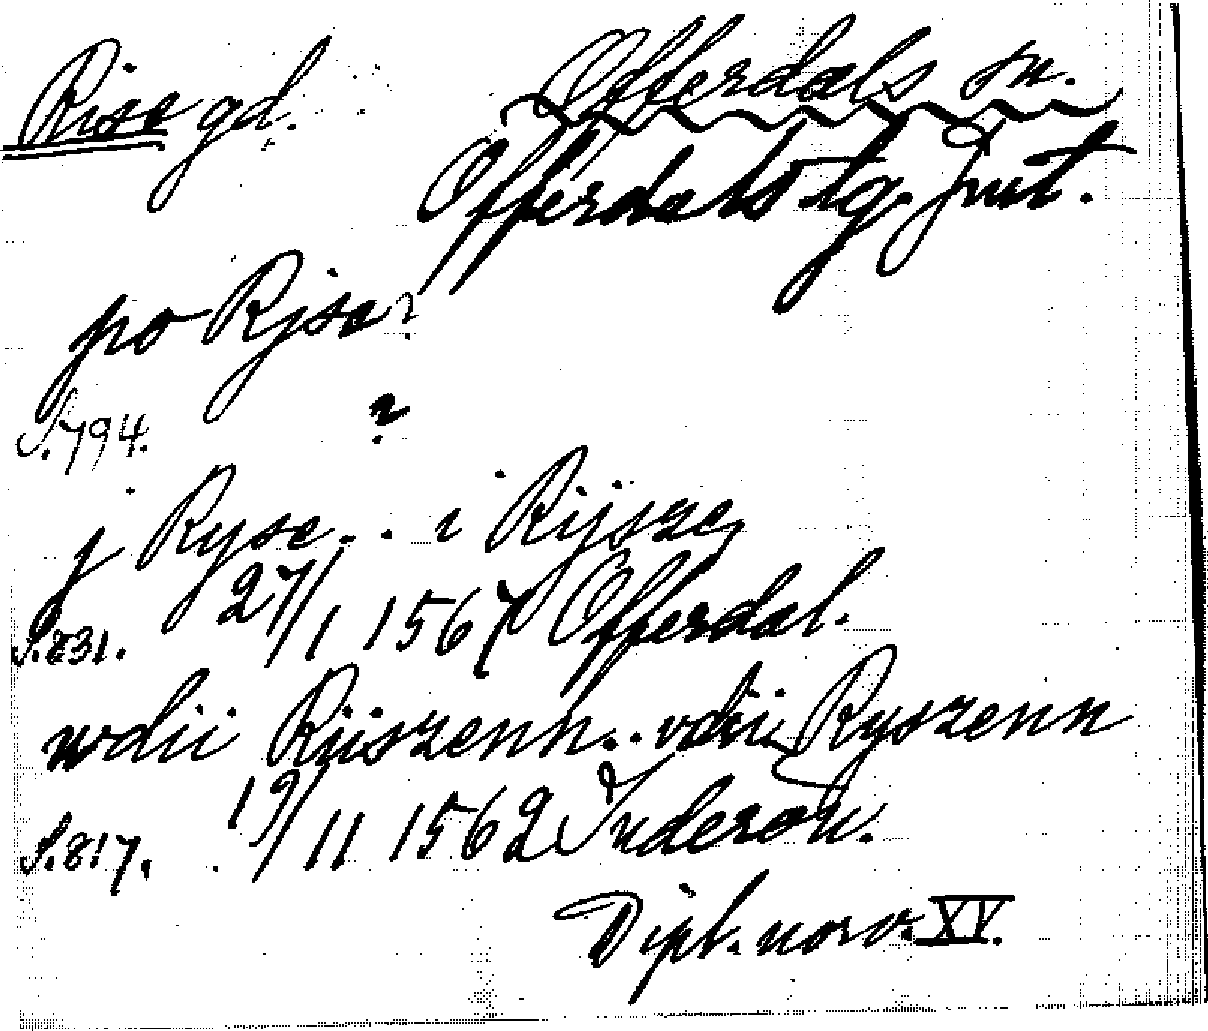 Rise gd. Offerdals sn.
Offerdals tg. Jmt.
po Rjse ?
S. 794. ?
j Ryse .. i Rijsze,
S. 831. 27/1 1567 Offerdal.
wdii Riiszenn .. vdii Ryszenn
S. 817. 19/11 1562 Inderøn.
Dipl. norv. XV.